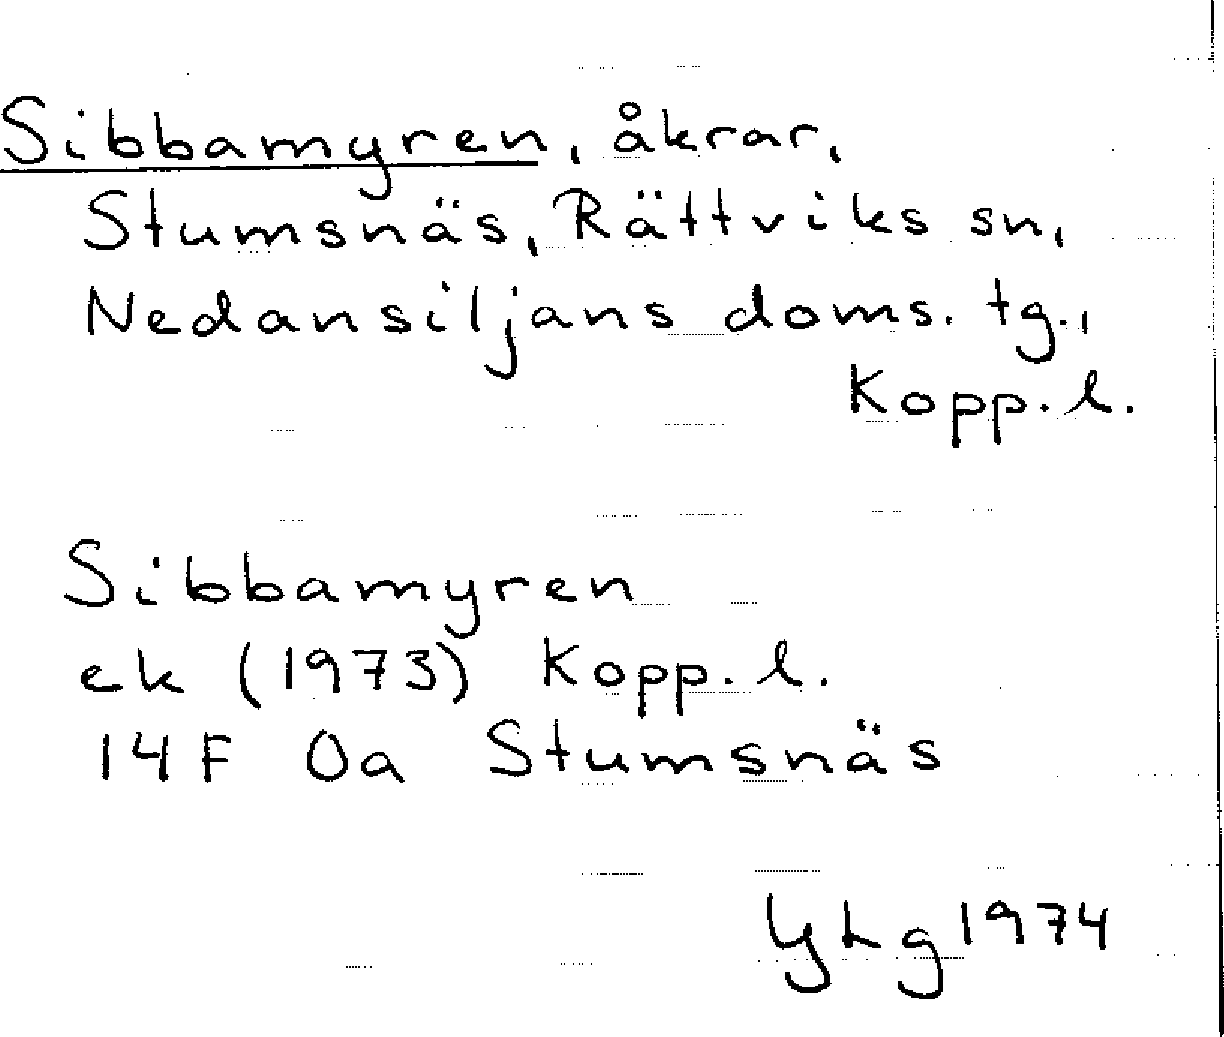 Sibbamyren, åkrar,
Stumsnäs, Rättviks sn,
Nedansiljans doms. tg.,
Kopp. l.
Sibbamyren
ek (1973) Kopp. l.
14F 0a Stumsnäs
YLg 1974